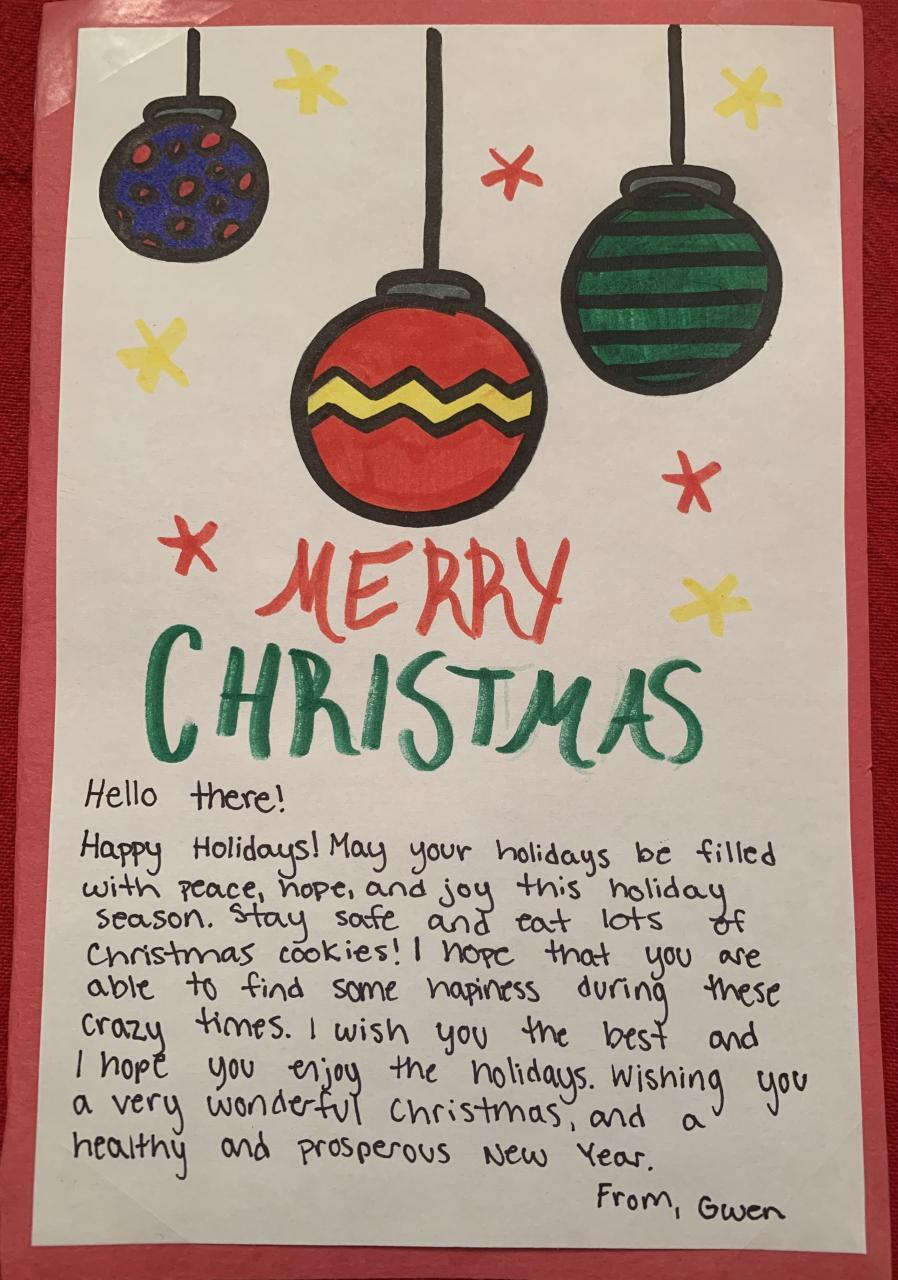 MERRY
CHRISTMAS
Hello there!
Happy Holidays! May your holidays be filled
with peace, hope, and joy this holiday
season. Stay safe and eat lots of
Christmas cookies! I hope that you are
able to find some hapiness during these
crazy times. I wish you the best and
I hope you enjoy the holidays. Wishing you
a very wonderful Christmas, and a
healthy and prosperous New Year.
From, Gwen